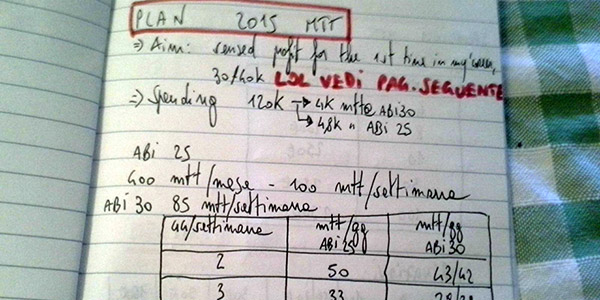 PLAN 2015 MTT
⇒ Aim: sensed profit for the 1st time in my career,
30/40k LOL VEDI PAG. SEGUENTE
⇒ Spending 120k → 4K mtt@ ABI 30
↳ 4,8K " ABI 25
ABI 25
400 mtt/mese - 100 mtt/settimana
ABI 30 85 mtt/settimana
GG/settimana mtt/gg ABI 25 mtt/gg ABI 30
2 50 43/42
3 33 28/29